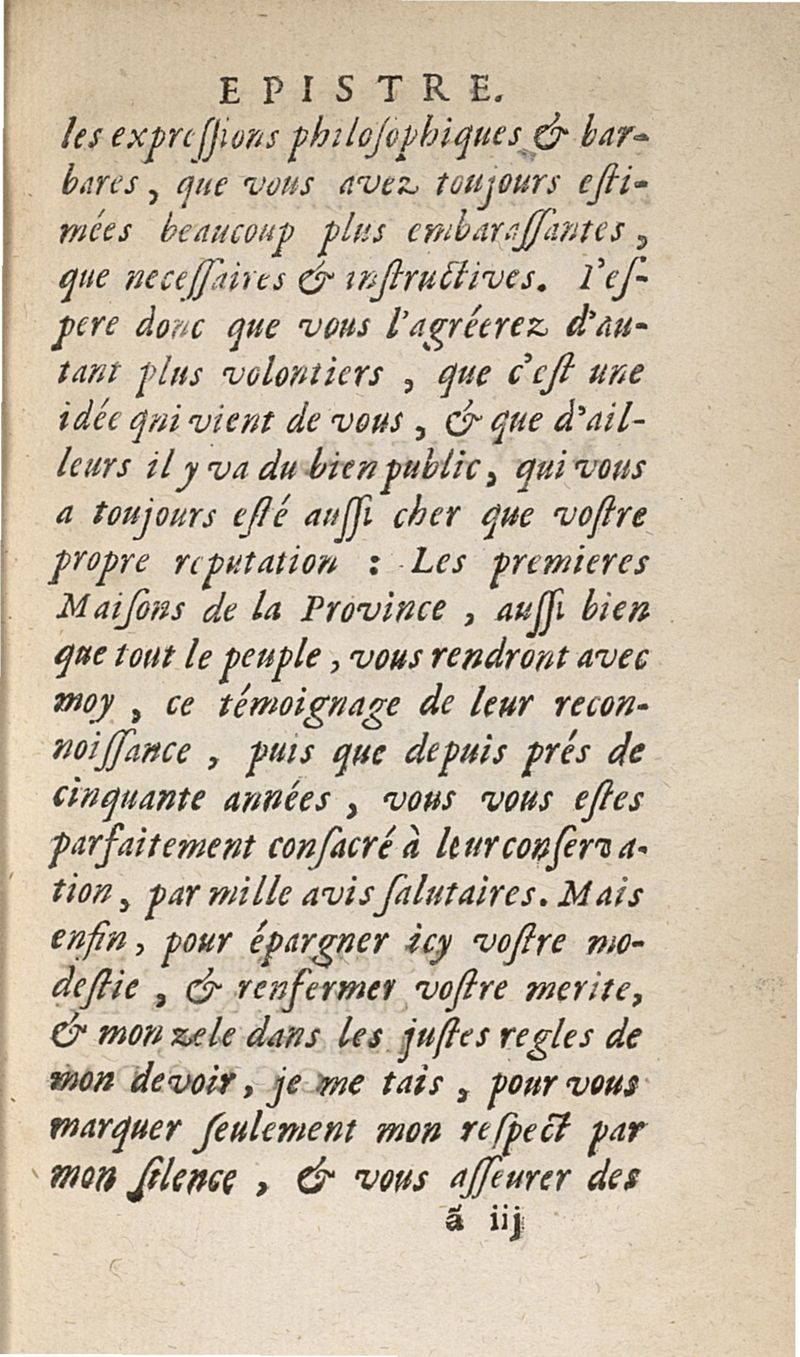 EPISTRE.
les expreſſions philoſophiques & bar-
bares, que vous avez toujours eſti-
mées beaucoup plus embaraſſantes,
que neceſſaires & inſtructives. I'eſ-
pere donc que vous l'agréerez d'au-
tant plus volontiers, que c'eſt une
idée qni vient de vous, & que d'ail-
leurs il y va du bien public, qui vous
a toujours eſté auſſi cher que voſtre
propre reputation : Les premieres
Maiſons de la Province, auſſi bien
que tout le peuple, vous rendront avec
moy, ce témoignage de leur recon-
noiſſance, puis que depuis prés de
cinquante années, vous vous eſtes
parfaitement conſacré à leur conſerva-
tion, par mille avis ſalutaires. Mais
enfin, pour épargner icy voſtre mo-
deſtie, & renfermer voſtre merite,
& mon zele dans les juſtes regles de
mon devoir, je me tais, pour vous
marquer ſeulement mon reſpect par
mon ſilence, & vous aſſeurer des
ã iij